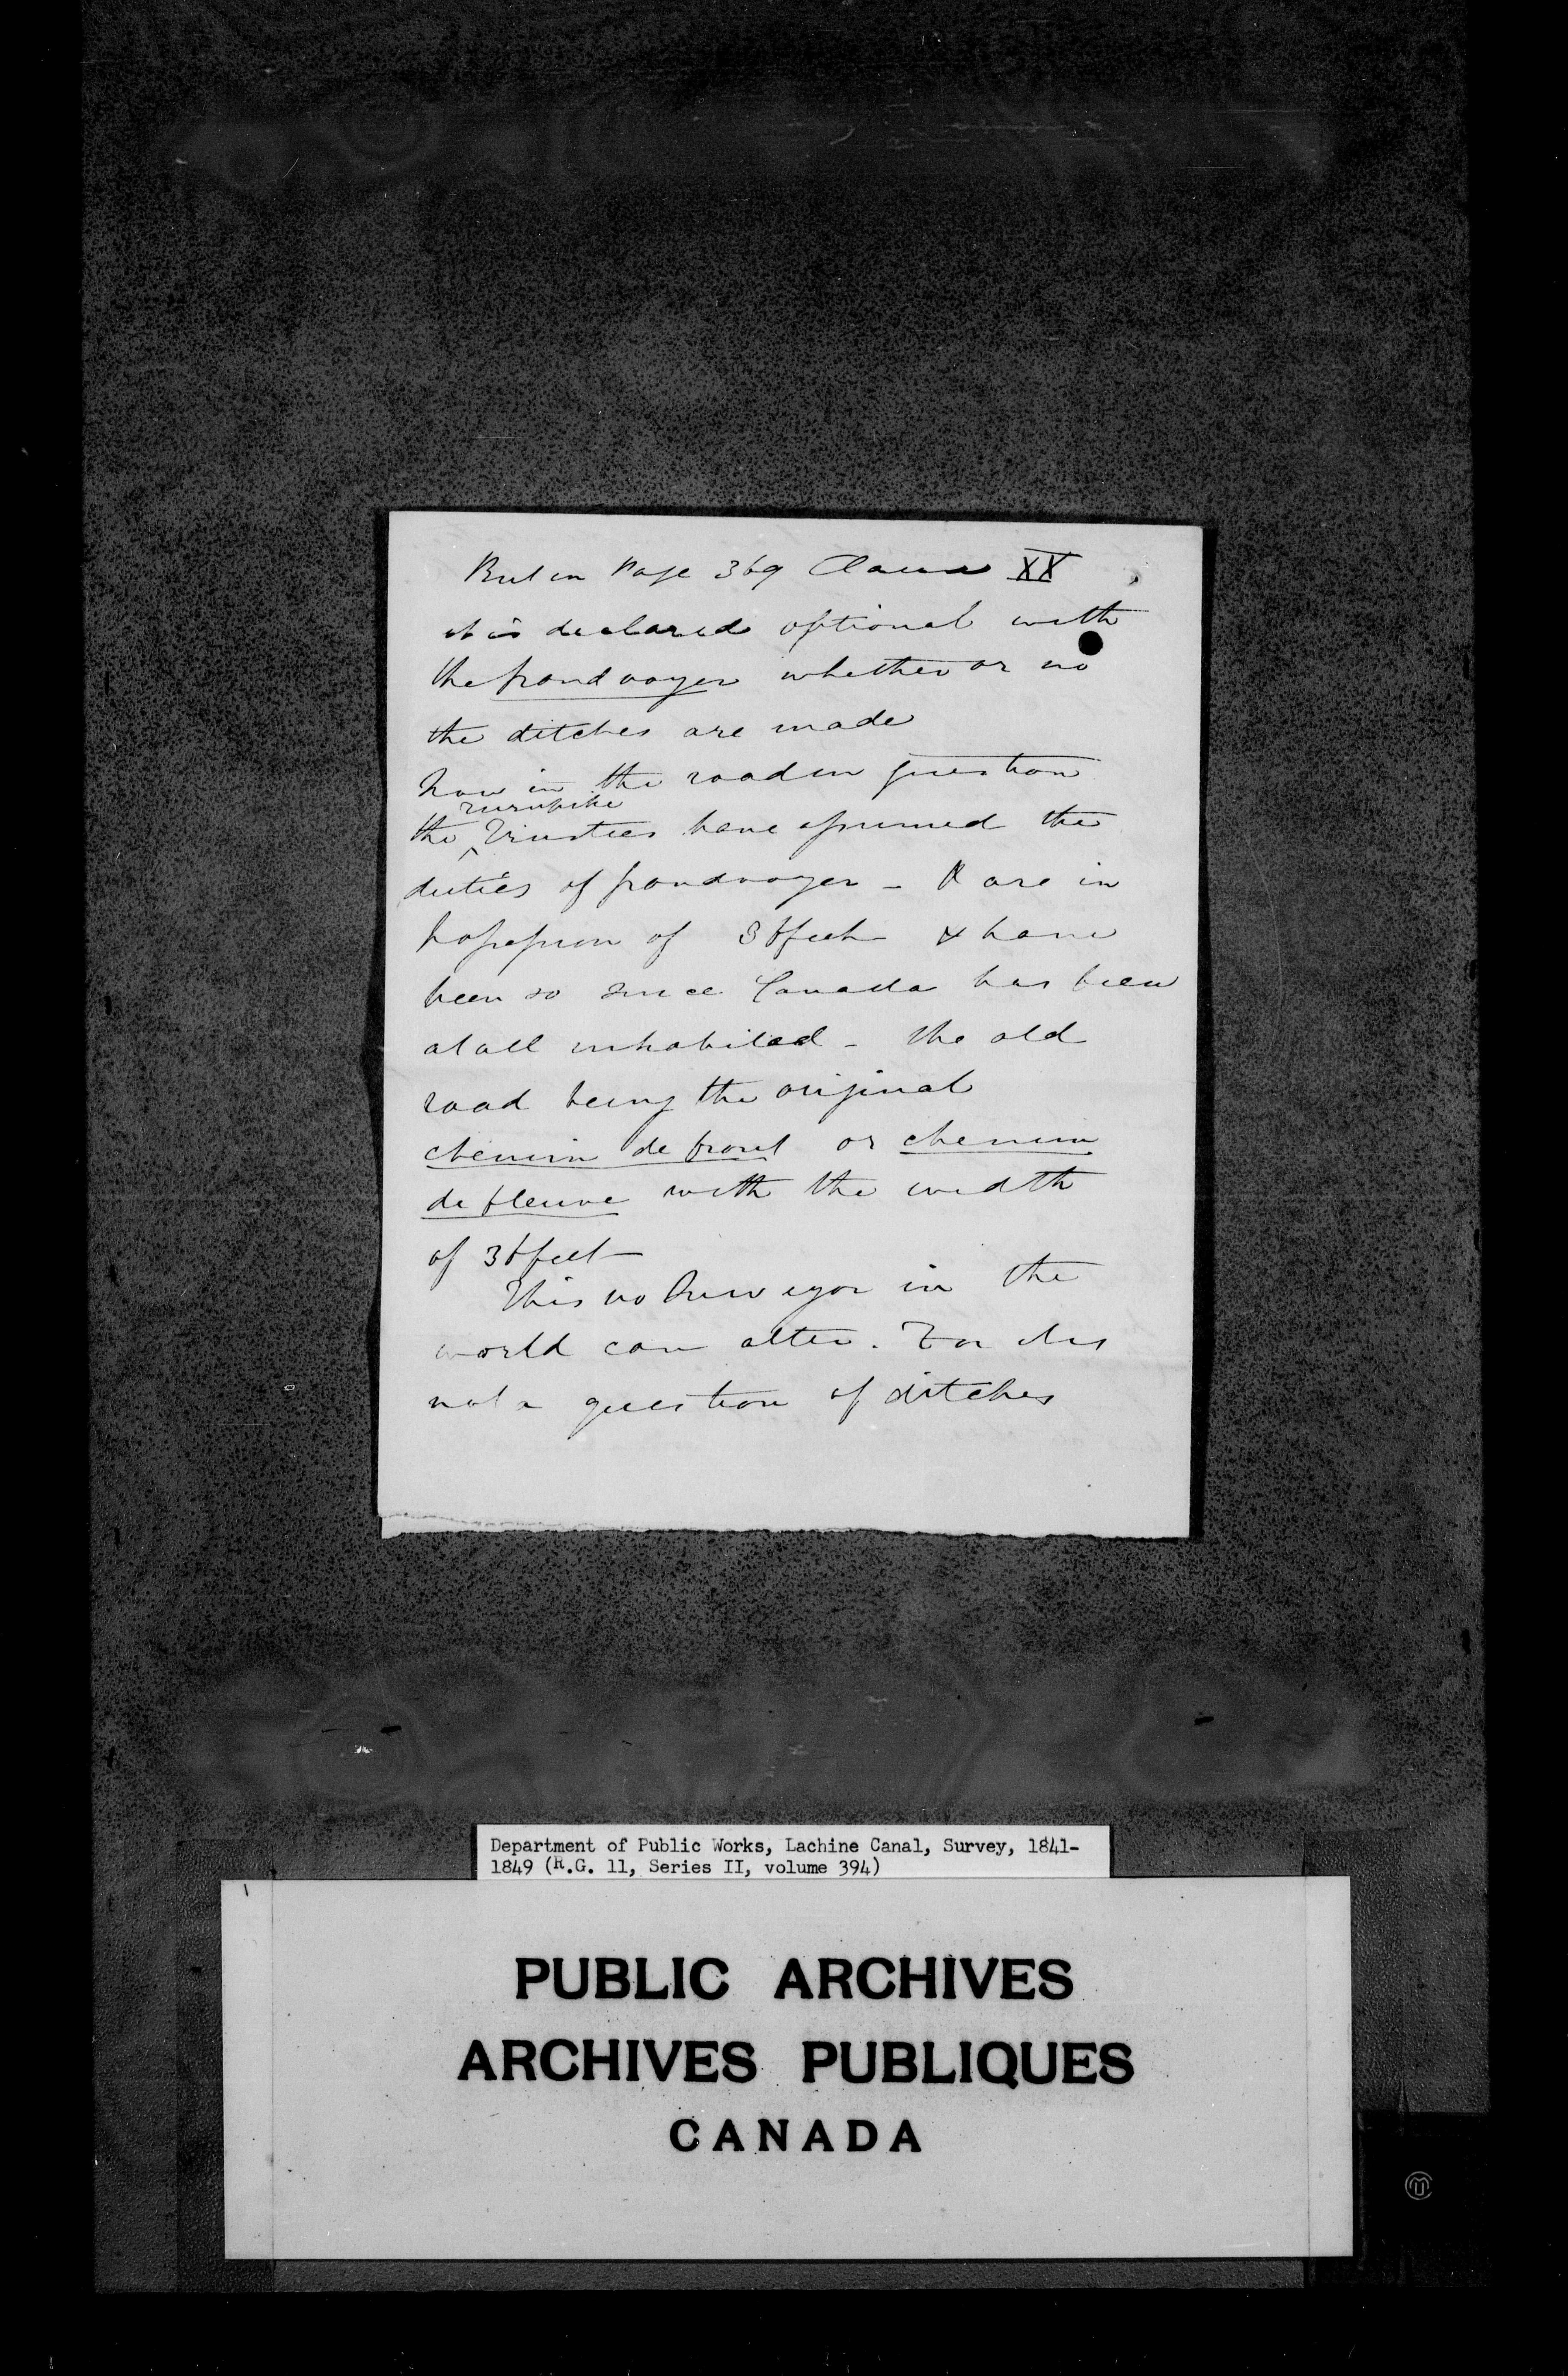 But in Page 369 Clause XX
it is declared optional with
the grand voyer whether or no
the ditches are made
Now in the road in question
turnpike
the Trustees have assumed the
duties of grand voyer - & are in
possession of 36 feet & have
been so since Canada has been
at all inhabited - the old
road being the original
chemin de front or chemin
de fleuve with the width
of 36 feet
This no Surveyor in the
world can alter. For it is
not a question of ditches
Department of Public Works, Lachine Canal, Survey, 1841-
1849 (R.G. 11, Series II, volume 394)
PUBLIC ARCHIVES
ARCHIVES PUBLIQUES
CANADA